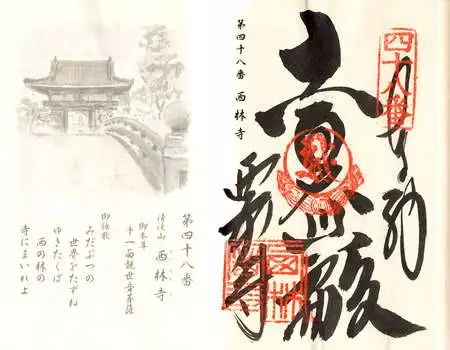 四十八番
奉納
西林寺
第四十八番 西林寺
第四十八番
清滝山 西林寺
御本尊
十一面観世音菩薩
御詠歌
みだぶつの
世界をたずね
ゆきたくば
西の林の
寺にまいれよ